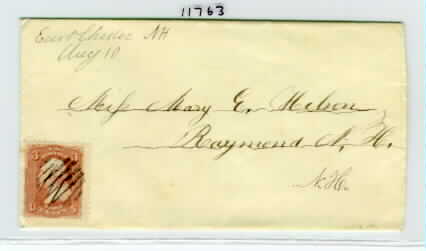 11763
East Chester NH
Aug 10
Miss Mary E.
Raymond N. H.
N.H.
3 3